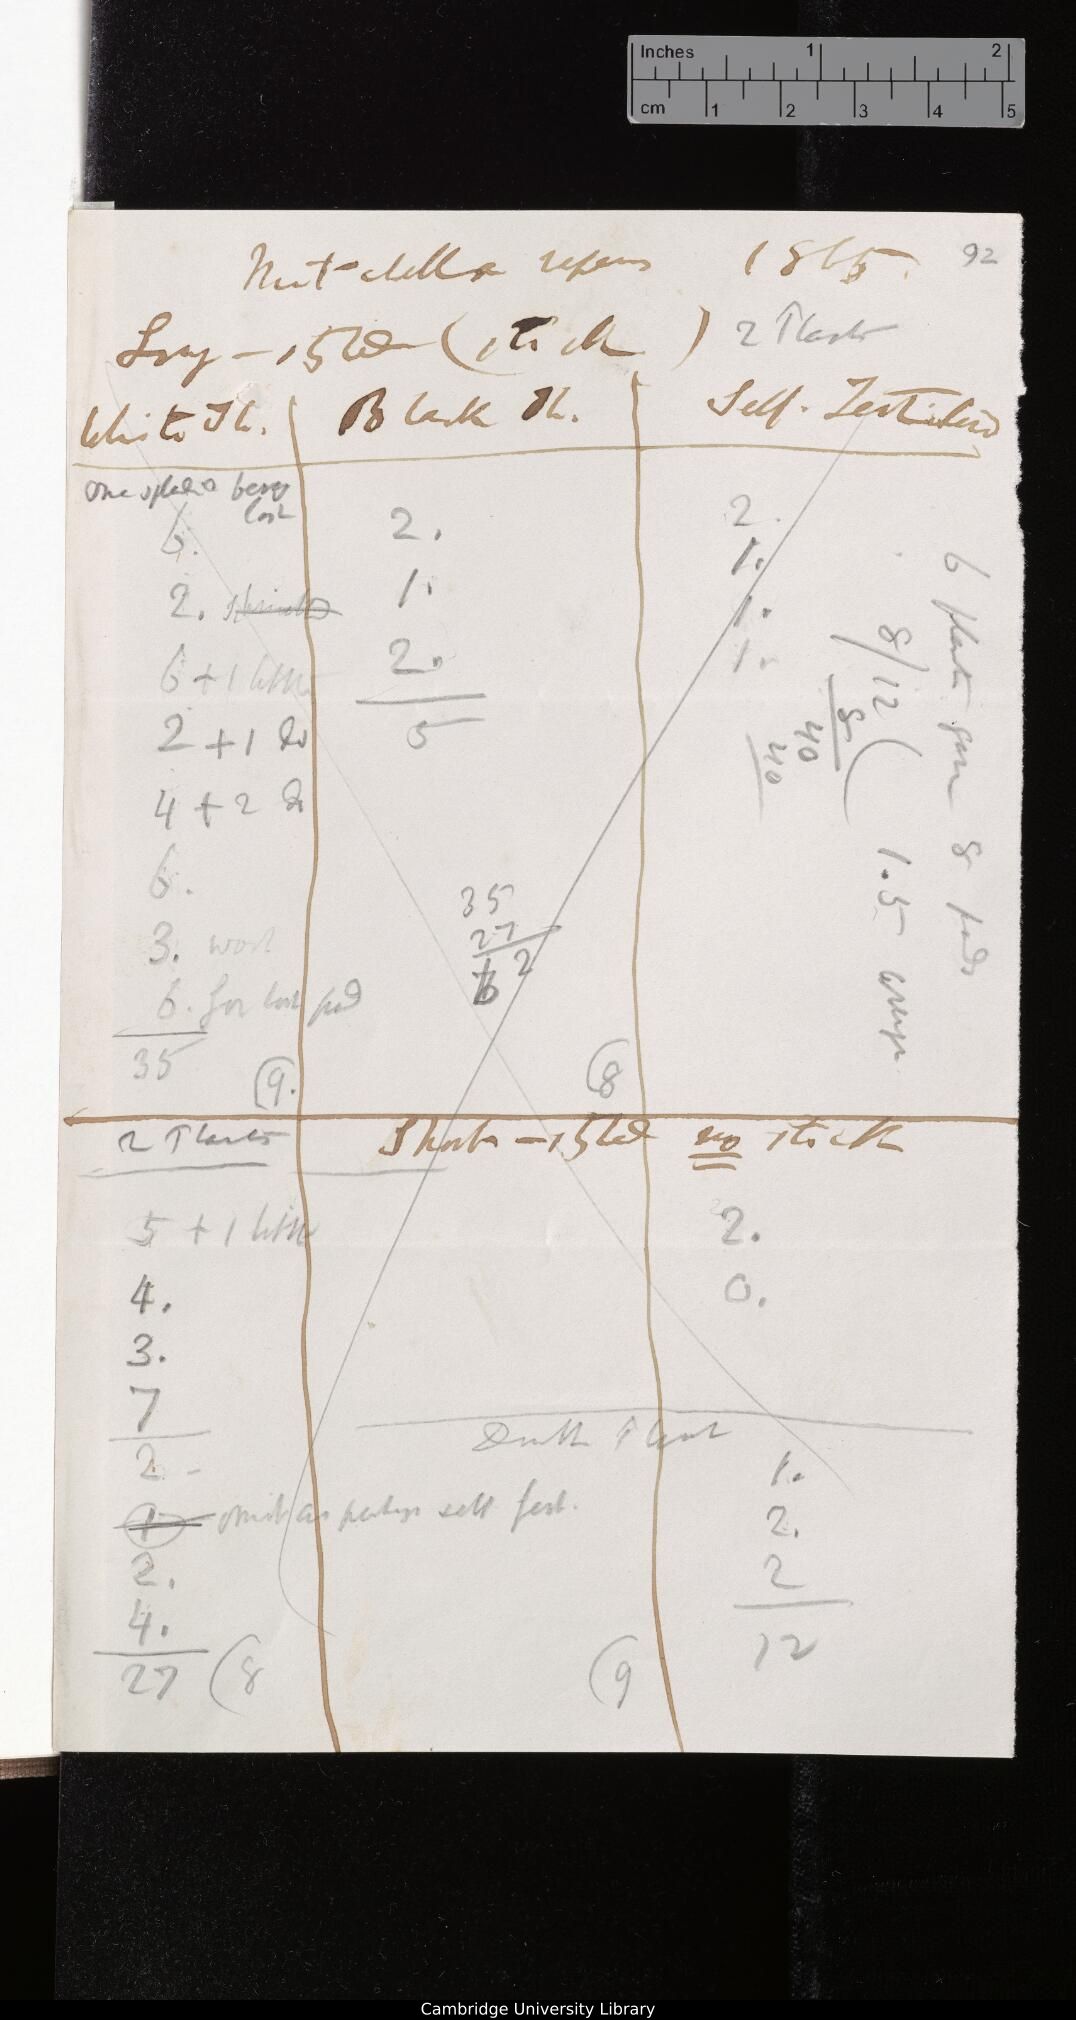 Inches 1 2
cm 1 2 3 4 5
Mitchella repens 1865. 92
Long-styled (stick) 2 Plants
White Th. Black Th. Self-Fertilised
One splendid berry
lost
6.
2.
6 + 1 little
2 + 1 do
4 + 2 do
6.
3. worst
6. for lost pod
35
(9.
2.
1.
2.
5
35
27
62
(8
2.
1.
1.
1.
6 plants gave 8 pods
8/12 ( 1.5 average
8
40
40
2 Plants Short-styled no stick
5 + 1 little
4.
3.
7
2 -
1 omit as perhaps self fert.
2.
4.
27 (8
2.
0.
Plant
1.
2.
2
12
(9
Cambridge University Library